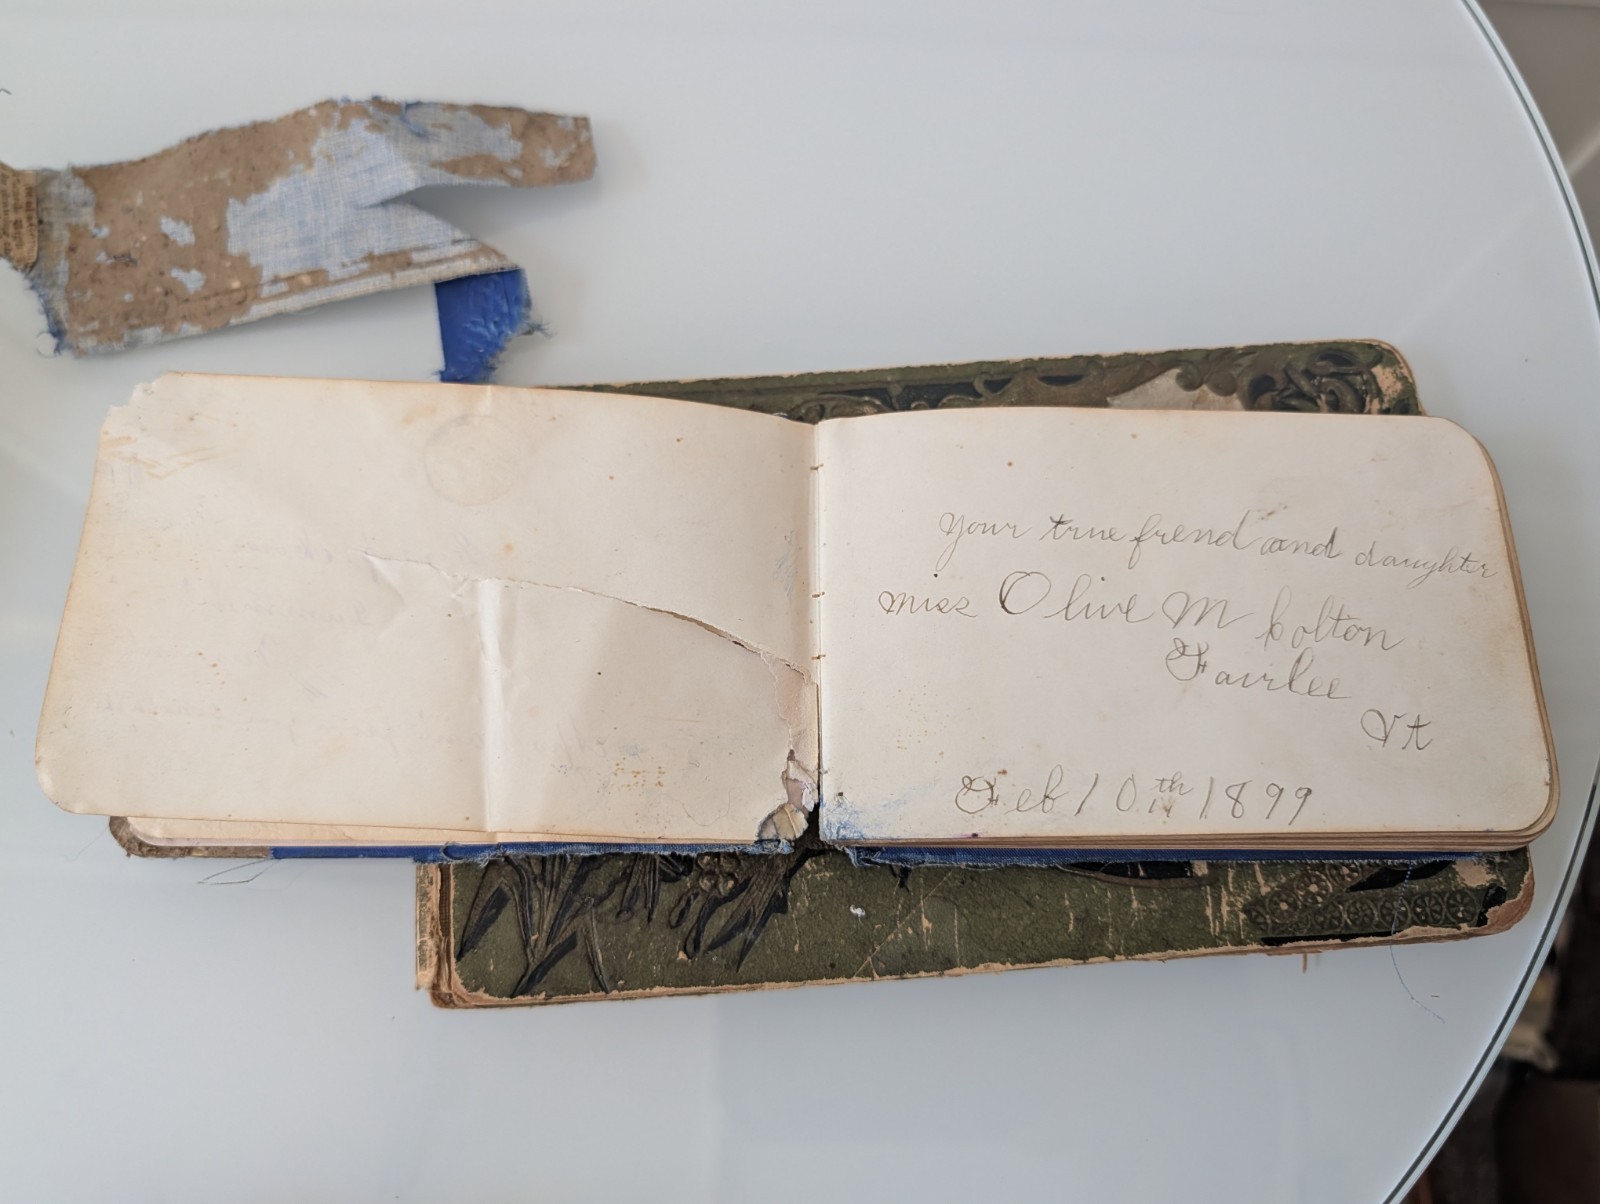 Your true frend and daughter
miss Olive M Colton
Fairlee
Vt
Feb 10th 1899